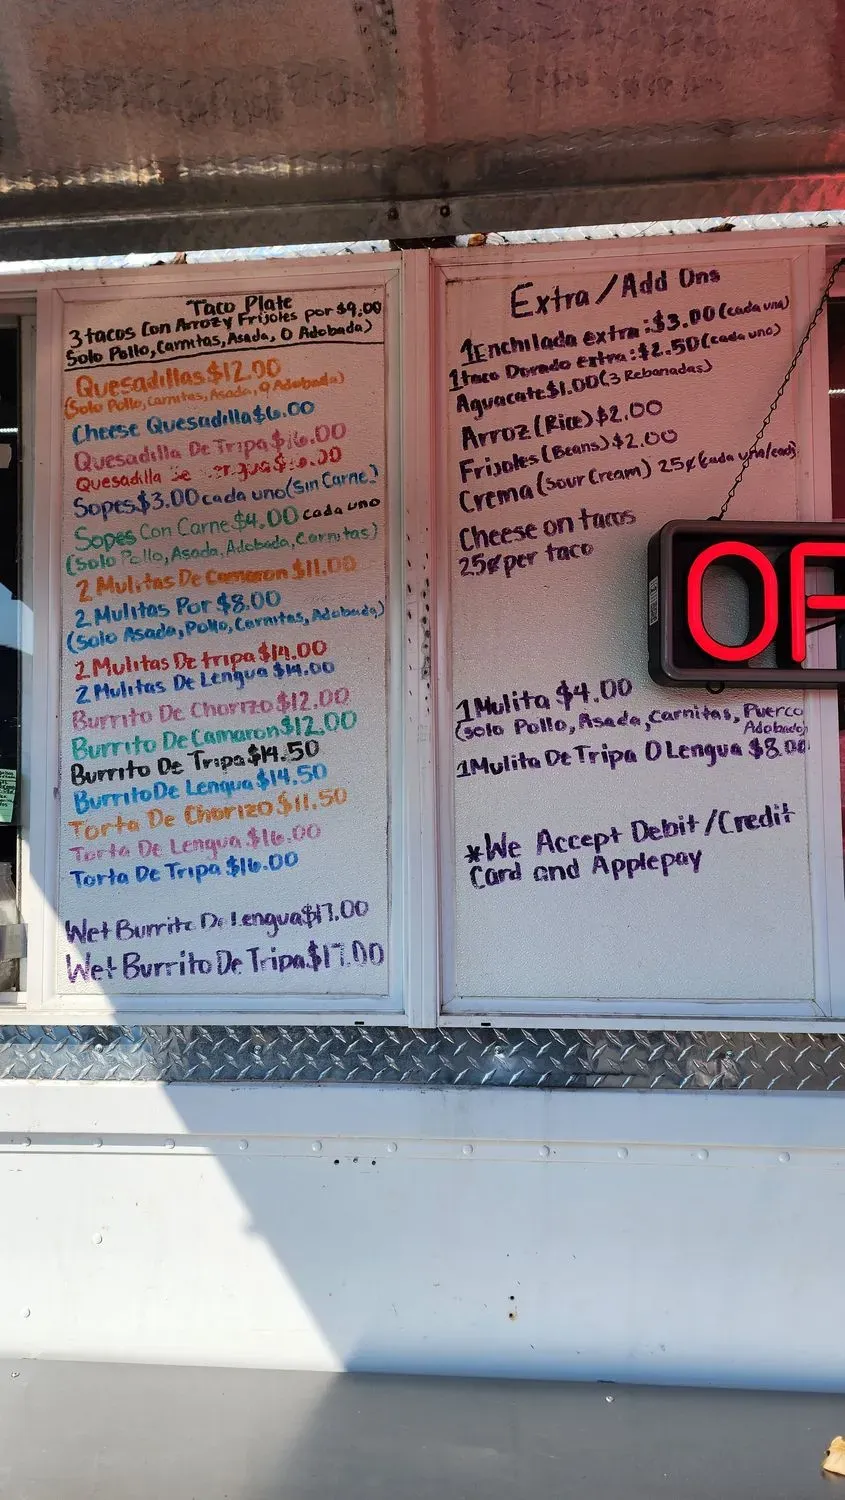 Taco Plate
3 tacos Con Arroz y Frijoles por $9.00
Solo Pollo, Carnitas, Asada, O Adobada)
Quesadillas $12.00
(Solo Pollo, Carnitas, Asada, O Adobada)
Cheese Quesadilla $6.00
Quesadilla De Tripa $16.00
Quesadilla
Sopes $3.00 cada uno (Sin Carne)
Sopes Con Carne $4.00 cada uno
(Solo Pollo, Asada, Adobada, Carnitas)
2 Mulitas De Camaron $11.00
2 Mulitas Por $8.00
(Solo Asada, Pollo, Carnitas, Adobada)
2 Mulitas De tripa $14.00
2 Mulitas De Lengua $14.00
Burrito De Chorizo $12.00
Burrito De Camaron $12.00
Burrito De Tripa $14.50
Burrito De Lengua $14.50
Torta De Chorizo $11.50
Torta De Lengua $16.00
Torta De Tripa $16.00
Wet Burrito De Lengua $17.00
Wet Burrito De Tripa $17.00
Extra/Add Ons
1 Enchilada extra: $3.00 (cada una)
1 taco Dorado extra: $2.50 (cada uno)
Aguacate $1.00 (3 Rebanadas)
Arroz (Rice) $2.00
Frijoles (Beans) $2.00
Crema (Sour Cream) 25¢ (cada uno/each)
Cheese on tacos
25¢ per taco
OP
1 Mulita $4.00
(Solo Pollo, Asada, Carnitas, Puerco
Adobado)
1 Mulita De Tripa O Lengua $8.00
*We Accept Debit/Credit
Card and Applepay